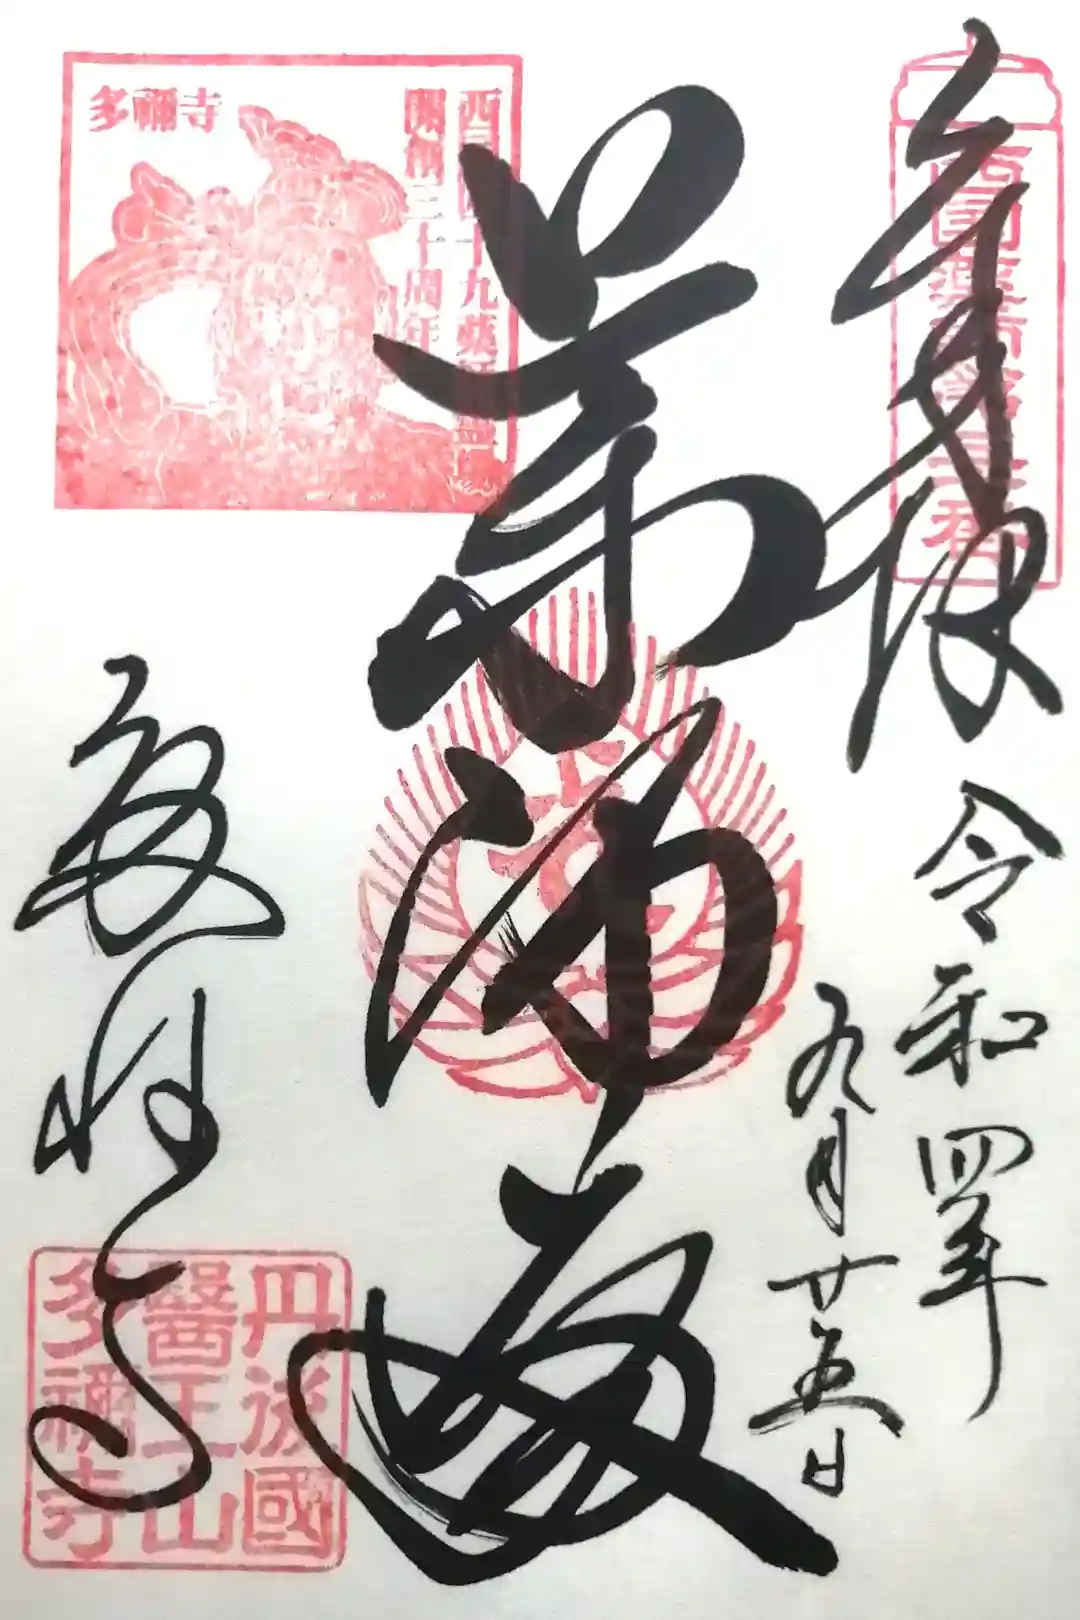 奉拝
西国薬師第三十番
令和四年
九月廿五日
薬師
西国四十九薬師霊場
開創三十周年
多禰寺
多祢寺
丹後國
醫王山
多禰寺